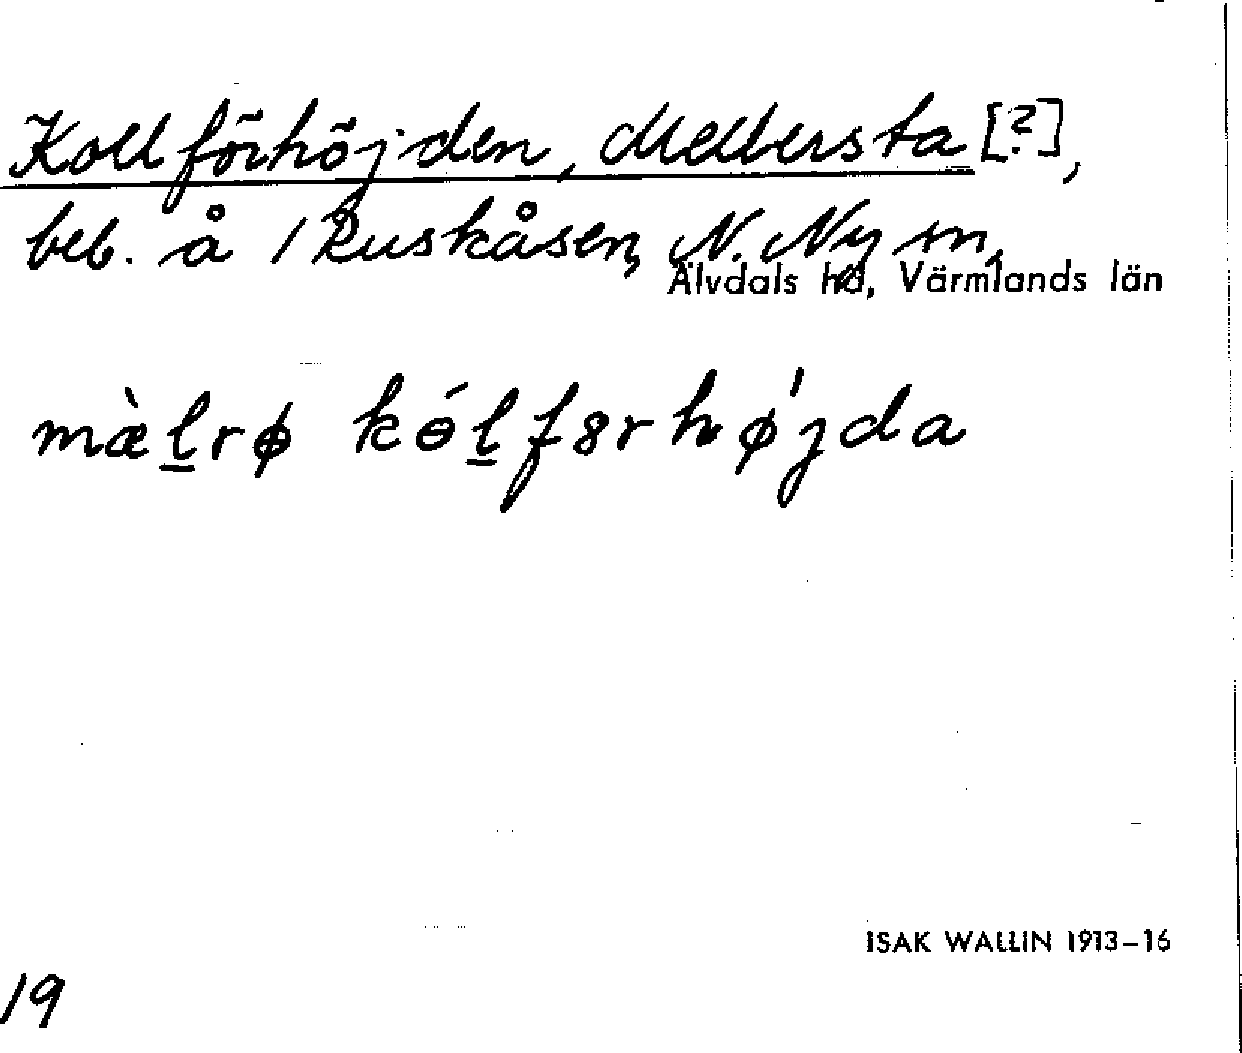 Kollförhöjden, Mellersta [?],
beb. å 1 Ruskåsen, N. Ny sn,
Älvdals hd, Värmlands län
mæ̀l̲rø kɵ́l̲fɜrhø̍jda
ISAK WALLIN 1913–16
19